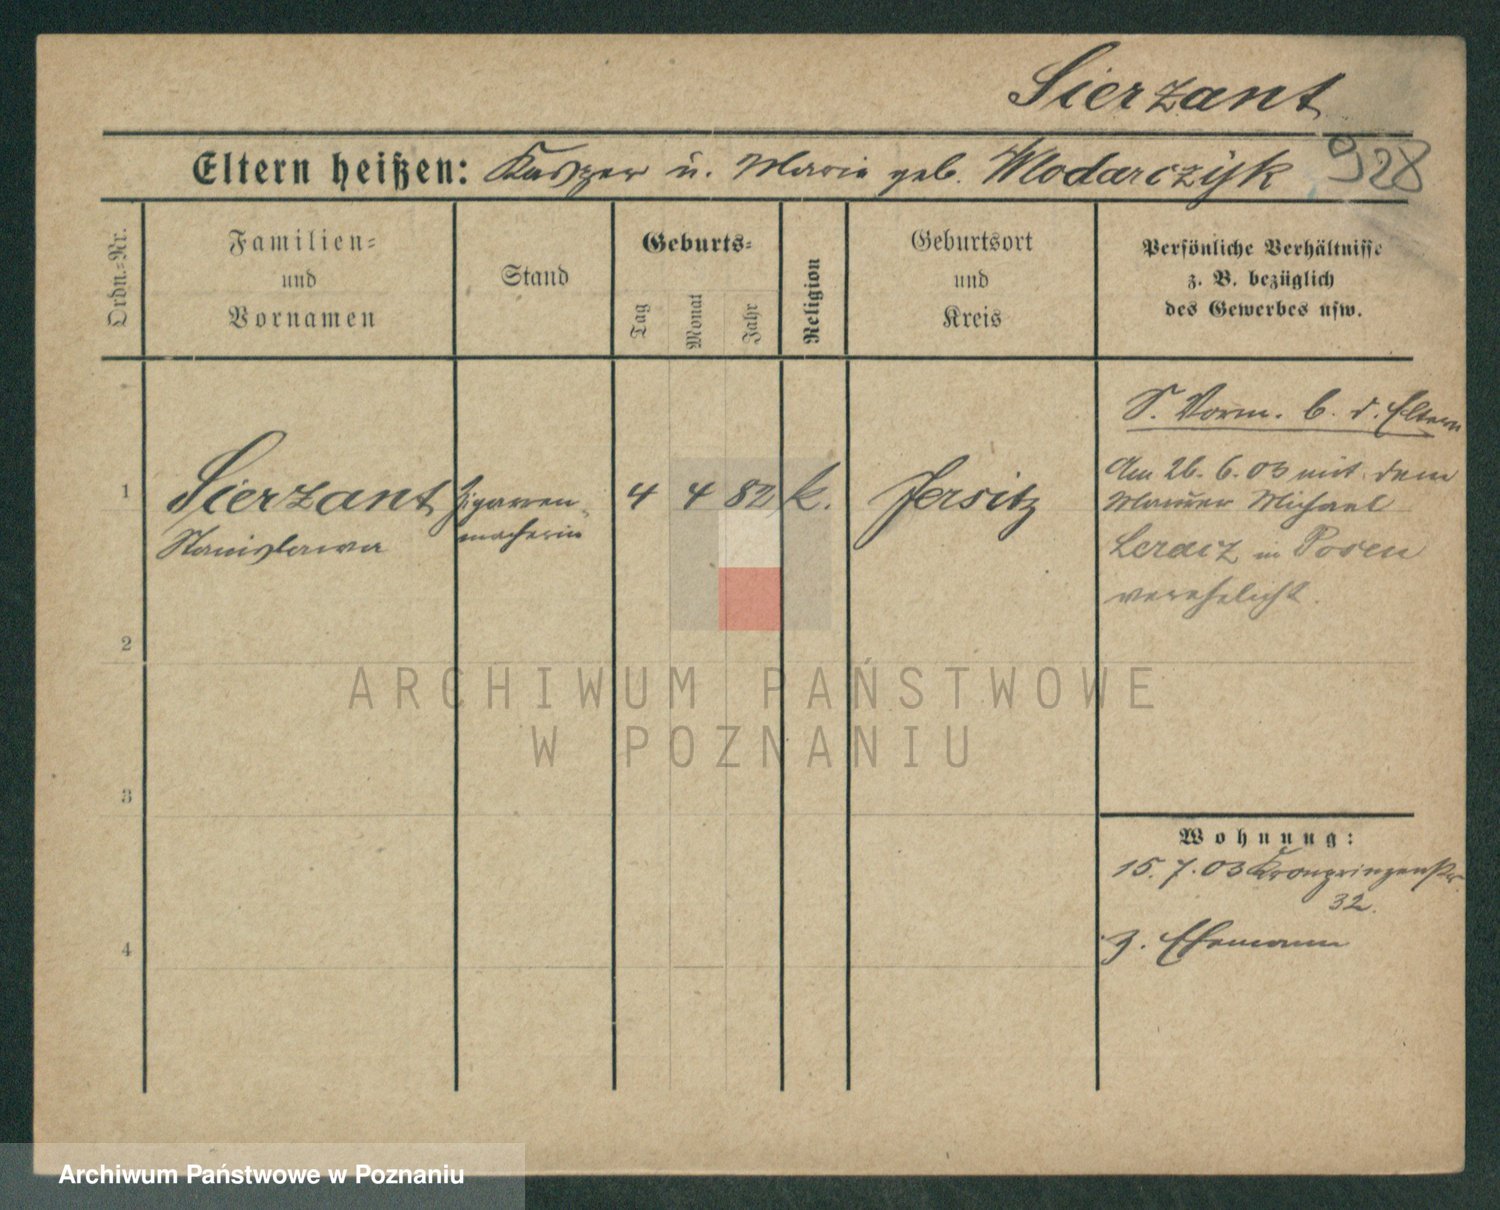 Sierzant
Eltern heißen: Kasper u. Marie geb. Wlodarczyk 928
Ordn.=Nr.
Familien=
und
Vornamen
Stand
Geburts=
Tag
Monat
Jahr
Religion
Geburtsort
und
Kreis
Persönliche Verhältnisse
z. B. bezüglich
des Gewerbes usw.
S. Vorm. b. d. Eltern
1
Sierzant
Stanislawa
Zigarren-
macherin
4 4 82 k.
Jersitz
Am 26. 6. 03 mit dem
Maurer Michael
in Posen
verehelicht.
2
3
4
Wohnung:
15. 7. 03 Kronprinzenstr.
32.
z. Ehemann
ARCHIWUM PAŃSTWOWE
W POZNANIU
Archiwum Państwowe w Poznaniu